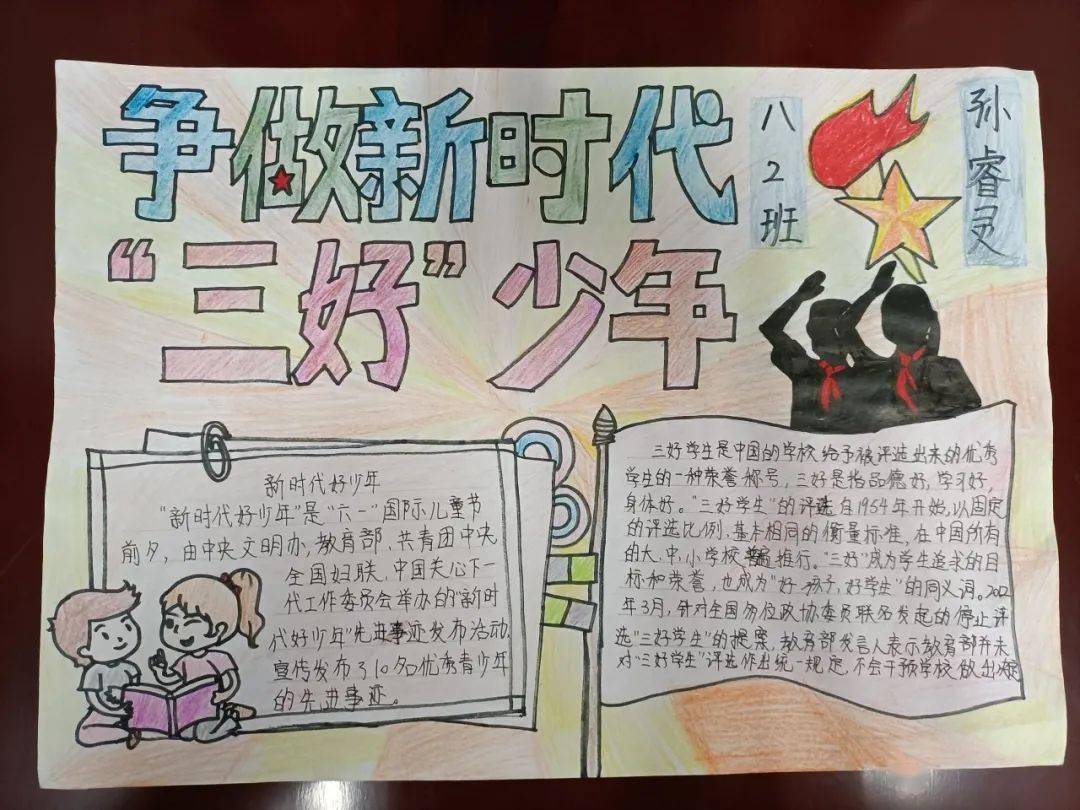 争做新时代
“三好”少年
八2班
孙睿灵
新时代好少年
“新时代好少年”是“六一”国际儿童节
前夕，由中央文明办、教育部、共青团中央、
全国妇联、中国关心下一
代工作委员会举办的“新时
代好少年”先进事迹发布活动，
宣传发布了10名优秀青少年
的先进事迹。
三好学生是中国的学校给予被评选出来的优秀
学生的一种荣誉称号，三好是指品德好，学习好，
身体好。“三好学生”的评选自1954年开始，以固定
的评选比例、基本相同的衡量标准，在中国所有
的大、中、小学校普遍推行。“三好”成为学生追求的目
标和荣誉，也成为“好孩子，好学生”的同义词。2022
年3月，针对全国多位政协委员联名发起的停止评
选“三好学生”的提案，教育部发言人表示教育部并未
对“三好学生”评选作出统一规定，不会干预学校做出决定